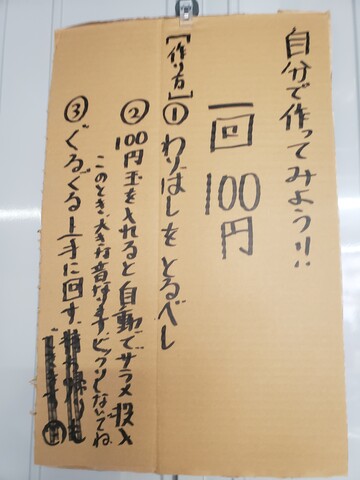 自分で作ってみよう!!
一回 100円
[作り方] ① わりばしをとるべし
② 100円玉を入れると自動でザラメ投入
このとき大きな音なりますビックリしないでね
③ ぐるぐる上手に回す。